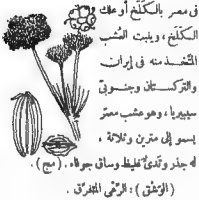 في مصر بالكَلَخ أو علك
الكَلَخ ، وينبت العُشب
المتّخذ منه في إيران
والتركستان وجنوبيّ
سيبيريا ، وهو عشب معمّر
يسمو إلى مترين وثلاثة ،
له جذر وتديّ غليظ وساق جوفاء . (مج) .
(الوَشْق) : الرّعْي المتفرّق .